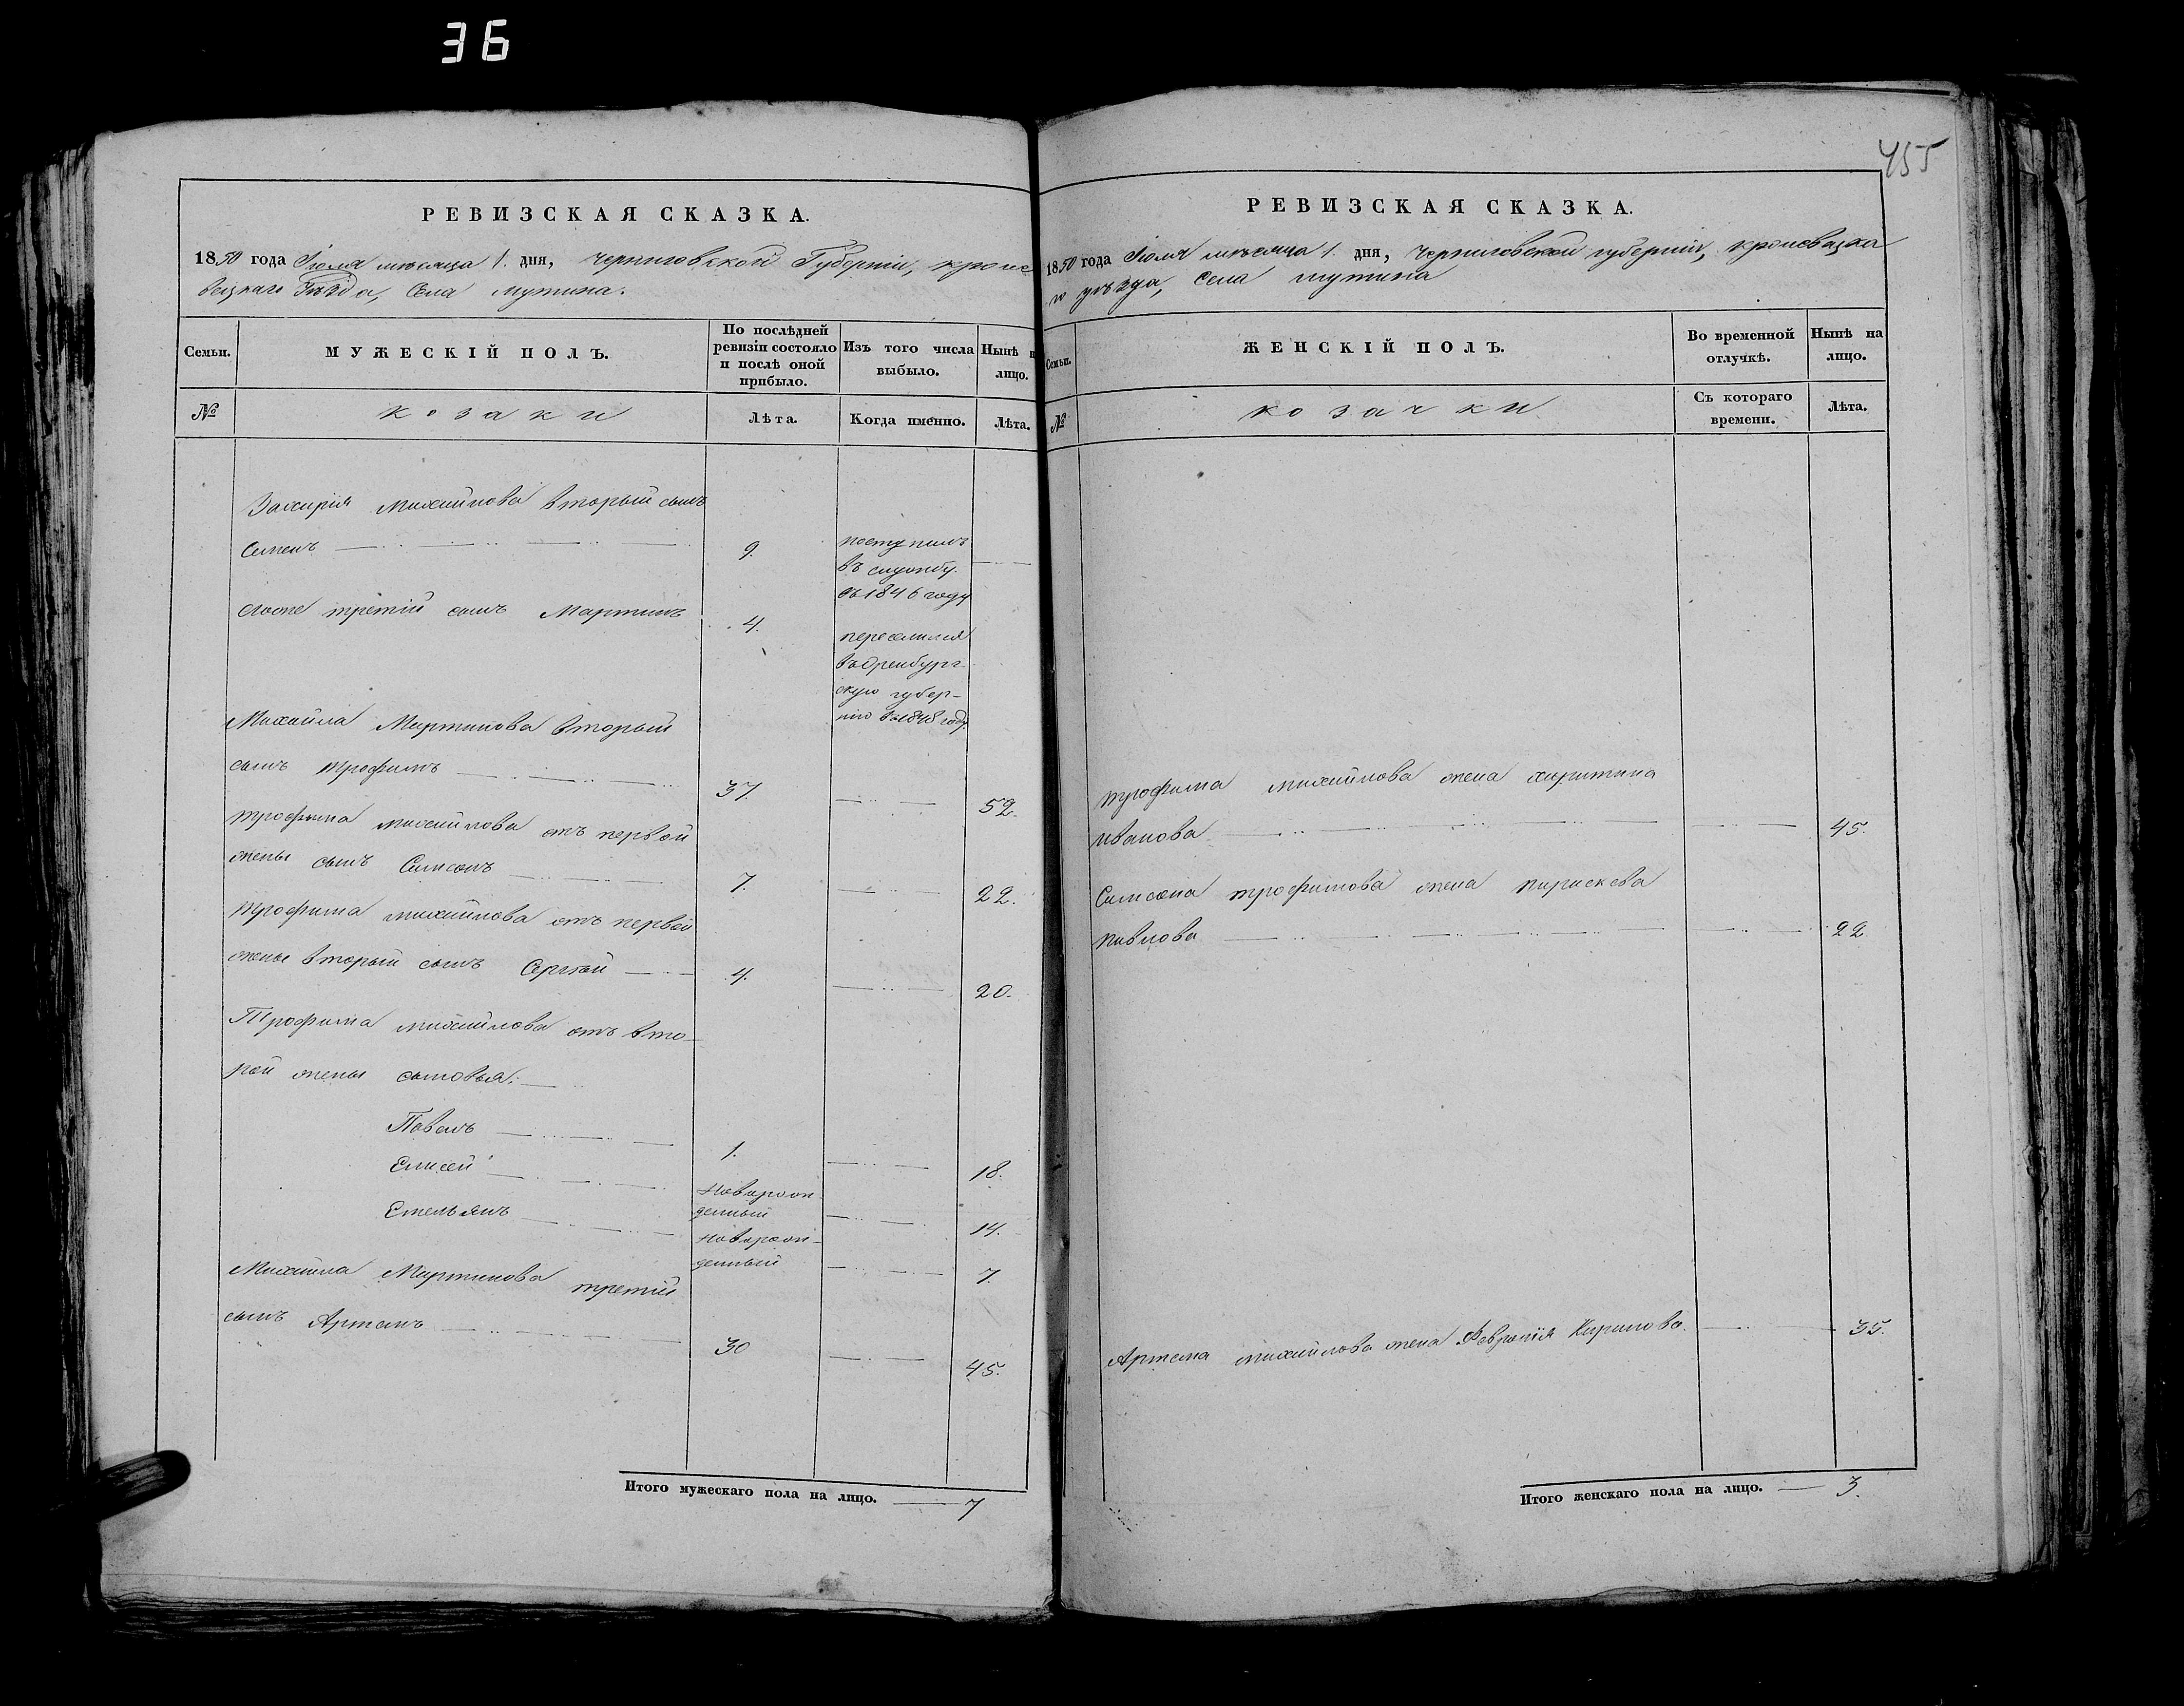 36
455
РЕВИЗСКАЯ СКАЗКА.
1850 года Іюля мѣсяца 1. дня, Черниговской Губерніи, кроле
вецкаго Уѣзда, Села Мутина.
Семьи.
МУЖЕСКІЙ ПОЛЪ.
По послѣдней
ревизіи состояло
и послѣ оной
прибыло.
Изъ того числа
выбыло.
Нынѣ н
лицо.
№
козаки
Лѣта.
Когда именно.
Лѣта.
Захарія Михайлова вторый сынъ
Семенъ 9. поступилъ
въ службу
въ 1846 году
третій сынъ Мартинъ 4. переселился
въ Оренбург-
скую губер-
нію въ 1848 году.
Михайла Мартинова вторый
сынъ трофимъ 37. 52.
трофима михайлова отъ первой
жены сынъ Самсонъ 7. 22.
трофима михайлова отъ первой
жены вторый сынъ Сергѣй 4. 20.
Трофима михайлова отъ вто-
рой жены сыновья:
Павелъ 1. 18.
Елисей новорож-
денный 14.
Емельянъ новорож-
денный 7.
Михайла Мартинова третій
сынъ Артемъ 30 45.
Итого мужескаго пола на лицо. 7
РЕВИЗСКАЯ СКАЗКА.
1850 года Іюля мѣсяца 1. дня, Черниговской губерніи, кролевецка
го уѣзда, Села мутина
Семьи.
ЖЕНСКІЙ ПОЛЪ.
Во временной
отлучкѣ.
Нынѣ на
лицо.
№
козачки
Съ котораго
времени.
Лѣта.
трофима михайлова жена харитина
иванова 45.
Самсона трофимова жена параскева
павлова 22
Артема михайлова жена Февронія Кирилова. 35.
Итого женскаго пола на лицо. 3.